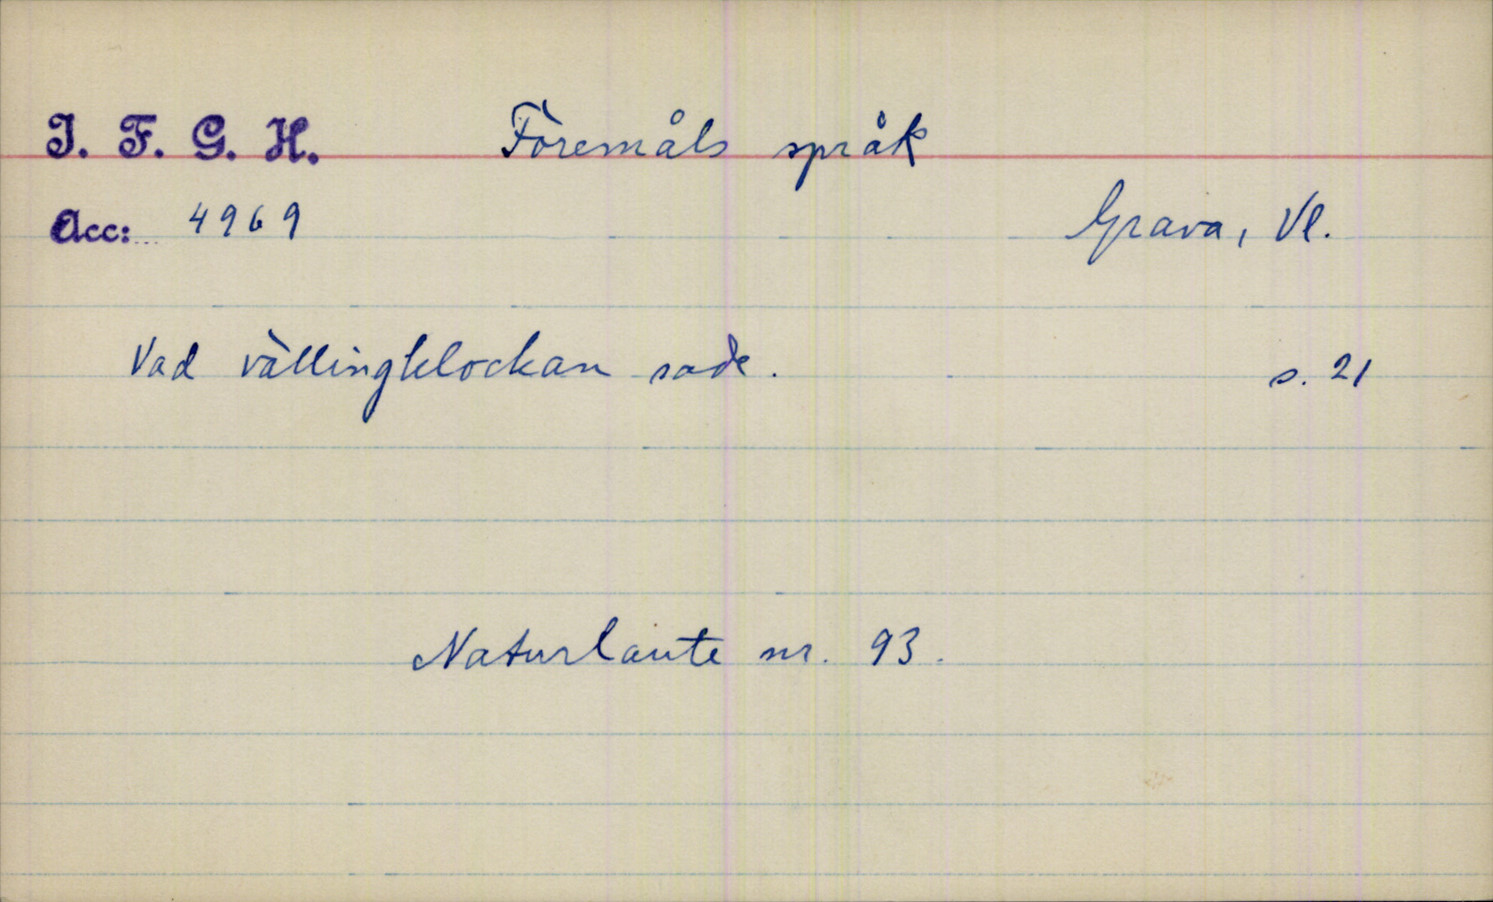 I. F. G. H. Föremåls språk
Acc: 4969 Grava, Vl.
Vad vällingklockan sade. s. 21
Naturlaute nr. 93.